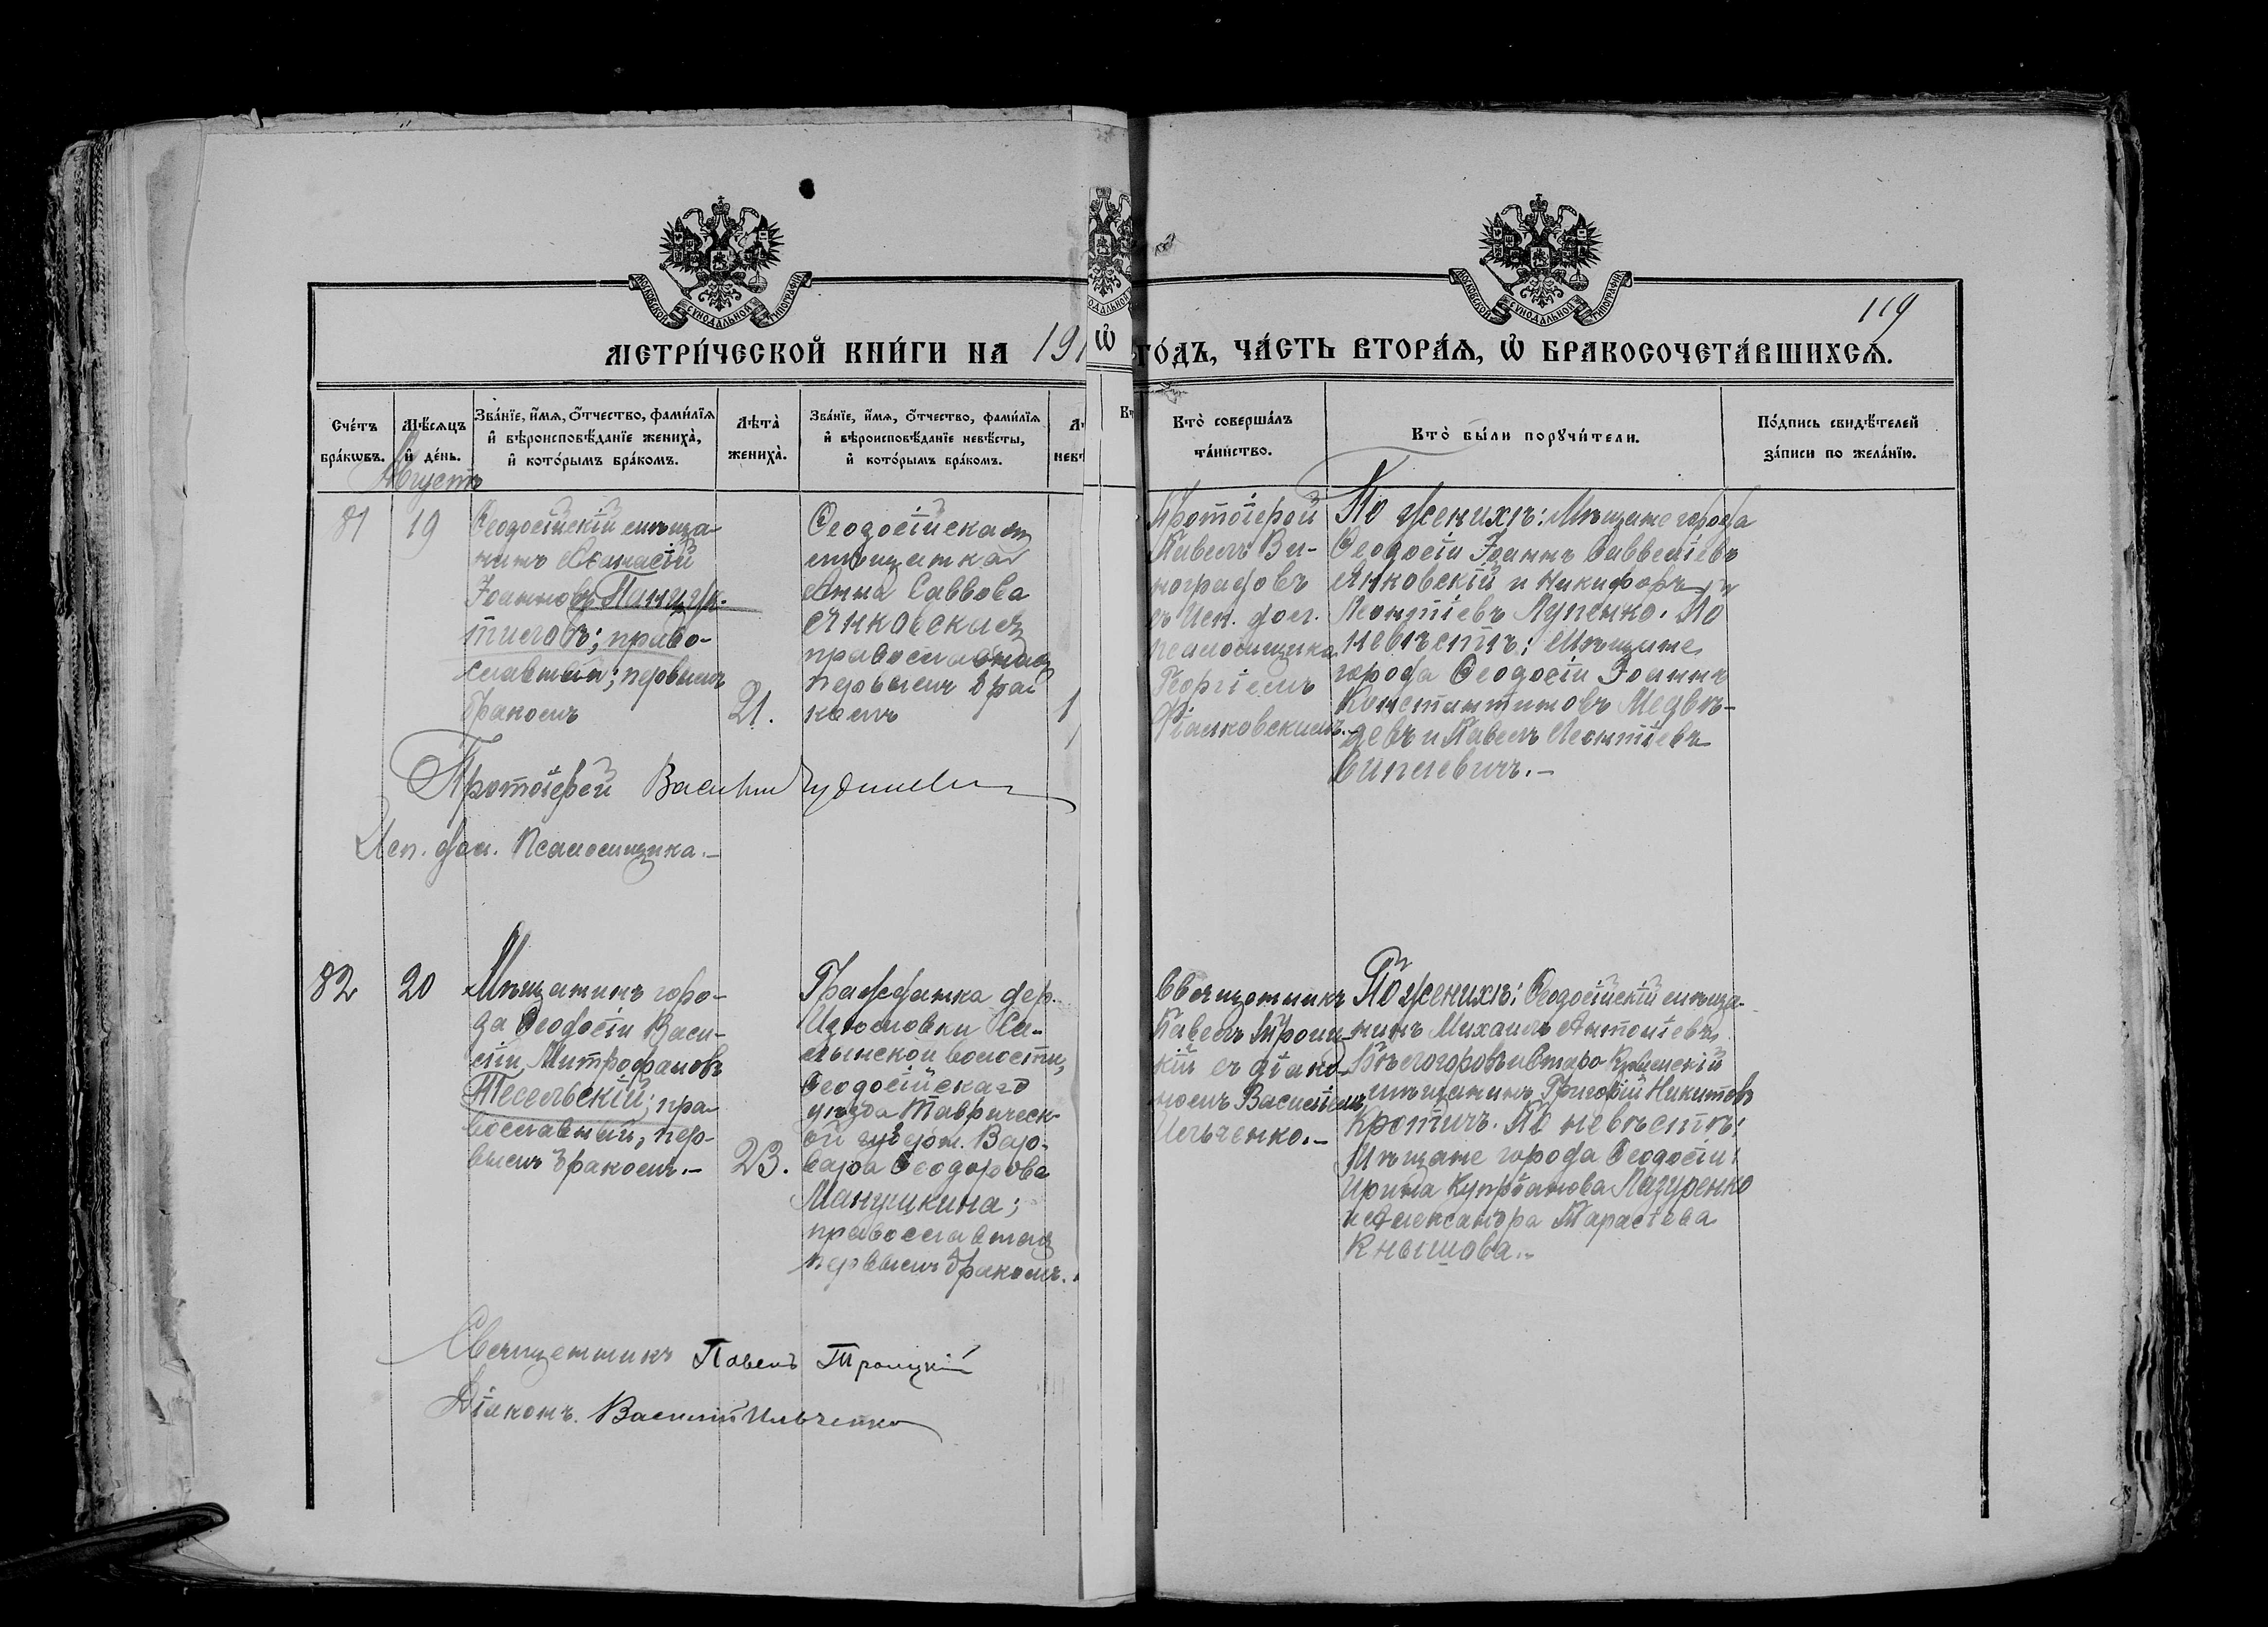 119
МЕТРИ́ЧЕСКОЙ КНИ́ГИ НА 191
Ѡ҆
ГО́ДЪ, ЧА́СТЬ ВТОРА́Я, Ѡ҆ БРАКОСОЧЕТА́ВШИХСЯ.
Сче́тъ бра́кѡвъ.
Мѣ́сяцъ и҆ де́нь.
Зва́нїе, и҆́мя, ѻ҆́тчество, фами́лїя
и҆ вѣроисповѣ́данїе жениха̀,
и҆ кото́рымъ бра́комъ.
Лѣта̀ жениха̀.
Зва́нїе, и҆́мя, ѻ҆́тчество, фами́лїя
и҆ вѣроисповѣ́данїе невѣ́сты,
и҆ кото́рымъ бра́комъ.
Кто̀ соверша́лъ
та́инство.
Кто̀ бы́ли порꙋчи́тели.
По́дпись свидѣ́телей
за́писи по жела́нїю.
Августъ
81
19
Ѳеодосійскій мѣща-
нинъ Аѳанасій
Іоанновъ
тиловъ; право-
славный; первымъ
бракомъ
21.
Ѳеодосійская
мѣщанка
Анна Саввова
Янковская
православная
первымъ бра
комъ
1
Протоіерей
Павелъ Ви-
ноградовъ
съ Исп. дол.
псаломщика
Георгіемъ
По женихѣ: Мѣщане города
Ѳеодосіи Іоаннъ Савветіевъ
Янковскій и Никифоръ
Леонтіевъ Лупенко. По
невѣстѣ: Мѣщане
города Ѳеодосіи Іоаннъ
Константиновъ Медвѣ-
девъ и Павелъ Леонтіевъ
Протоіерей Василій
Исп. дол. Псаломщика.-
82
20
Мѣщанинъ горо-
да Ѳеодосіи Васи-
лій Митрофановъ
Тесельскій; пра-
вославный, пер-
вымъ бракомъ.-
23.
Гражданка дер.
Изюмовки Са-
лынской волости,
Ѳеодосійскаго
уѣзда Тавричес-
ой губерн. Вар-
вара Ѳеодорова
Манушкина;
православная
первымъ бракомъ.
Священникъ
Павелъ Троиц-
кій съ діако-
номъ Василіемъ
Ильченко.-
По женихѣ: Ѳеодосійскій мѣща-
нинъ Михаилъ Антоніевъ
Бѣлогоровъ и Старо-Крымскій
мѣщанинъ Григорій Никитовъ
Кротичъ. По невѣстѣ:
Мѣщане города Ѳеодосіи:
Ирина Купріанова Лазуренко
и Александра Тарасіева
Кнышова.-
Священникъ Павелъ Троицкій
Діаконъ. Василій Ильченко